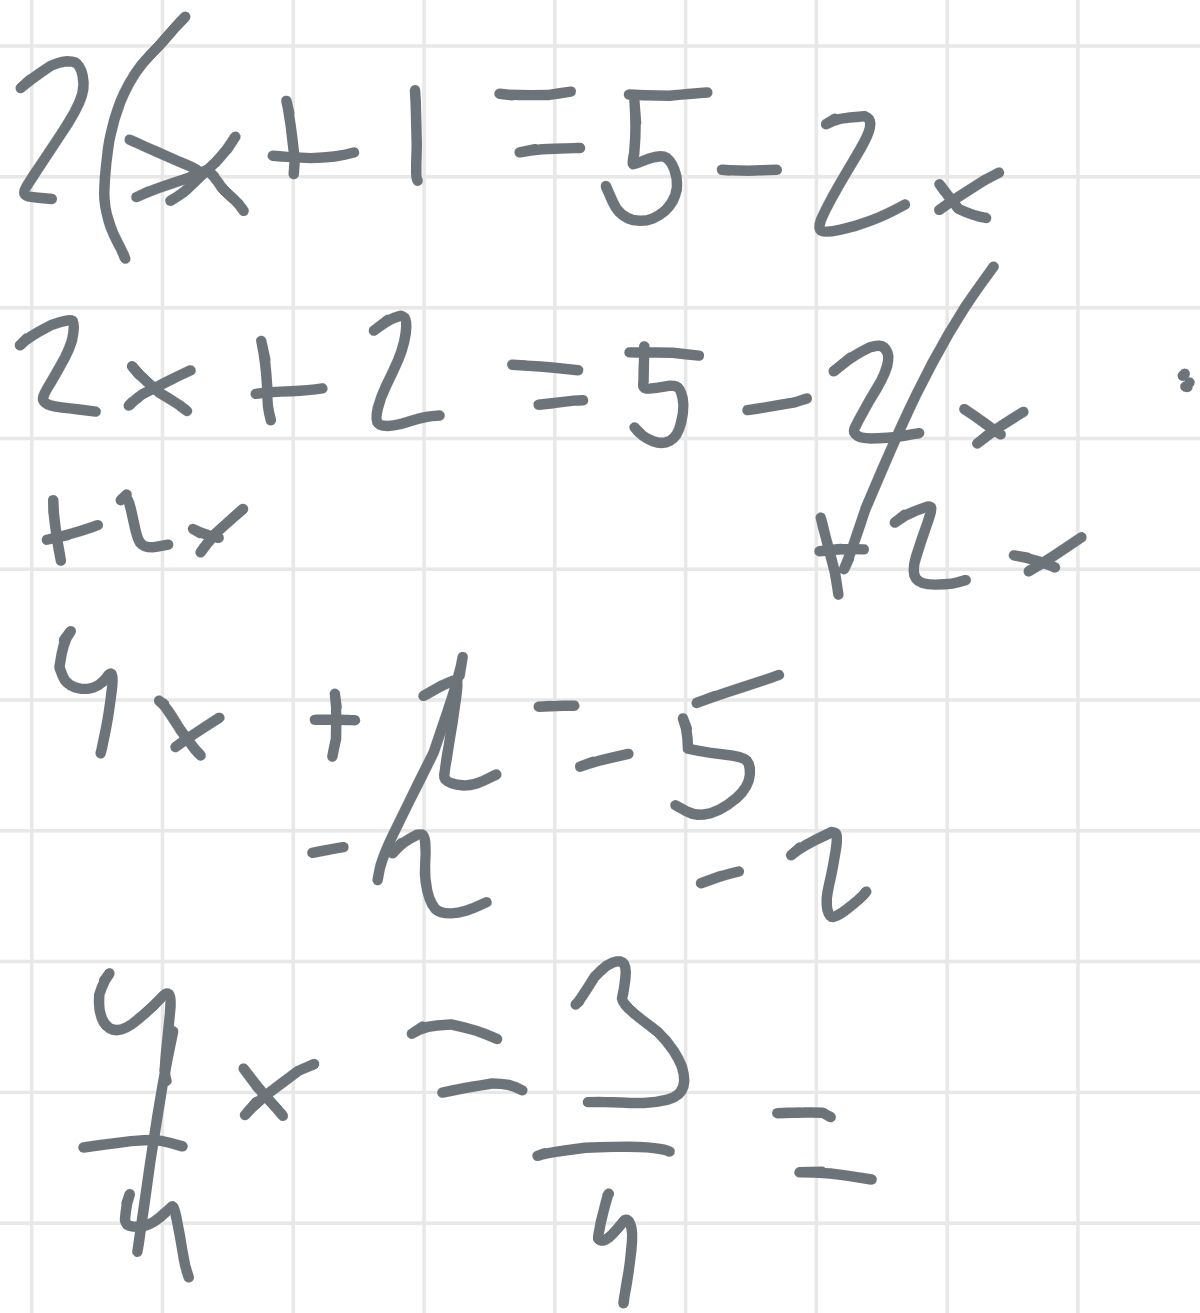 2(x+1=5-2x
2x+2=5-2x
+2x +2x
4x+2=5
-2 -2
4/4 x = 3/4 =